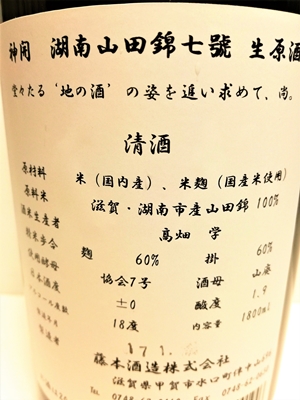 神開 湖南山田錦七號 生原酒
堂々たる‘地の酒’の姿を追い求めて、尚。
清酒
原材料 米（国内産）、米麹（国産米使用）
原料米 滋賀・湖南市産山田錦 100%
酒米生産者 高畑 学
精米歩合 麹 60% 掛 60%
使用酵母 協会7号 酒母 山廃
日本酒度 ±0 酸度 1.9
アルコール度数 18度 内容量 1800ml
製造年月 17.1.
製造者 藤本酒造株式会社
滋賀県甲賀市水口町伴中山